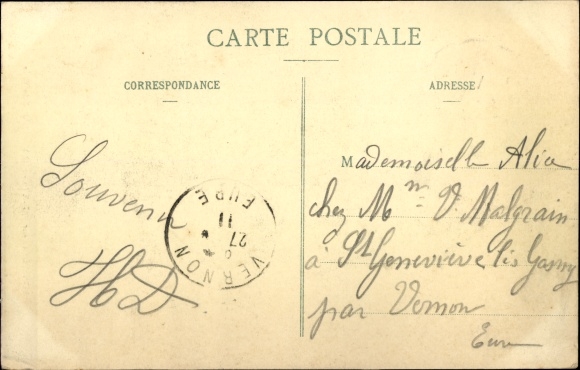 CARTE POSTALE
CORRESPONDANCE
ADRESSE
Souvenir
HD
VERNON
EURE
27
11
Mademoiselle Alice
chez Mme V. Malgrain
à St Geneviève lès Gasny
par Vernon
Eure